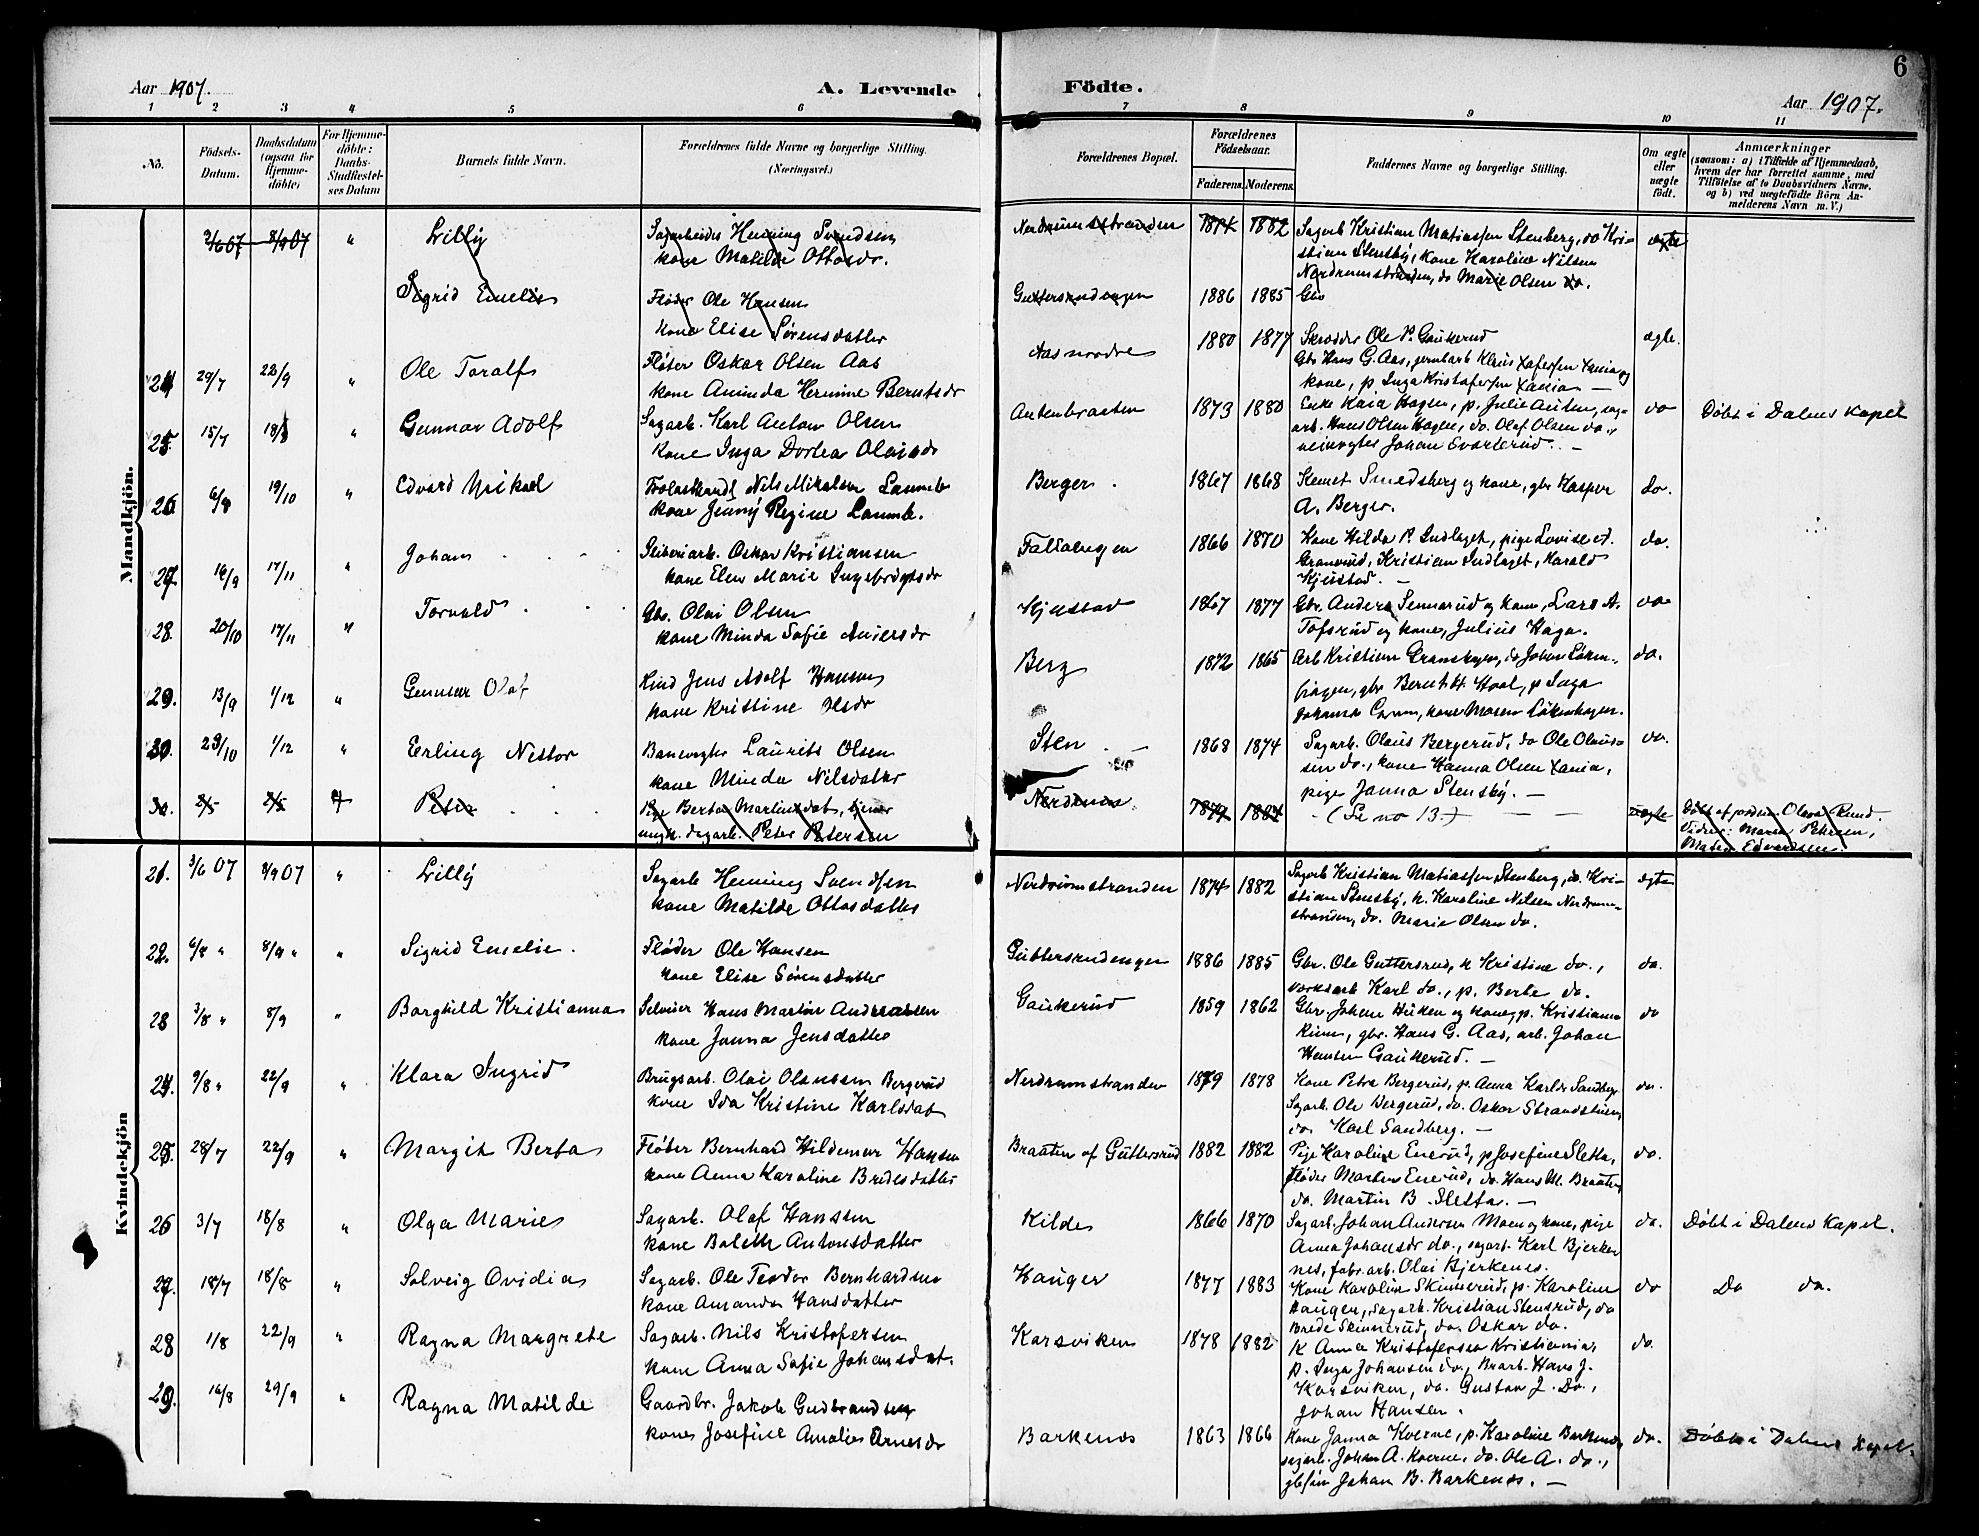 6
Aar 1907.
A. Levende
Födte.
Aar 1907.
1 2 3 4 5 6 7 8 9 10 11
No.
Födsels-
Datum.
Daabsdatum
(ogsaa for
Hjemme-
döbte)
For Hjemme-
döbte:
Daabs-
Stadfæstel-
ses Datum
Barnets fulde Navn.
Forældrenes fulde Navne og borgerlige Stilling.
(Næringsvei.)
Forældrenes Bopæl.
Forældrenes
Födselsaar.
Faderens. Moderens.
Faddernes Navne og borgerlige Stilling.
Om ægte
eller
uægte
födt.
Anmærkninger
(saasom: a) i Tilfælde af Hjemmedaab,
hvem der har forrettet samme, med
Tilföielse af to Daabsvidners Navne,
og b) ved uægtefödte Börn An-
melderens Navn m. V.)
Mandkjön.
3/6 07 8/9 07 " Lilly Sagarbeider Henning Svendsen Nordrumstranden 1874 1882 Sagarb Kristian Matiassen Stenberg, do Kri- ægte
kone Matilde Ottosdr. stian Stensby, kone Karoline Nilsen
Nerdrumstranden, do Marie Olsen do.
Sigrid Emelie Fløder Ole Hansen Guttersrudengen 1886 1885 Gbr
kone Elise Sørensdatter
24 29/7 22/9 " Ole Toralf Fløter Oskar Olsen Aas Aasnordre 1880 1877 Skrædder Ole P. Gaukerud ægte.
kone Aminda Hermine Berntsdr Gbr Hans G. Aas, jernbarb Klaus
kone, p. Inga Kristofersen Xania —
25. 15/7 18/8 " Gunnar Adolf Sagarb. Karl Anton Olsen Autenbraaten 1873 1880 Enke Kaia Hagen, p. Julie Auten, sag- do Døbt i Dalens Kapel
kone Inga Dortea Olaisdr arb. Hans Olsen Hagen, do. Olaf Olsen do.,
Johan —
26 6/8 19/10 " Edvard Mikael Nils Mikalsen Laumb Berger. 1867 1868 Smedsberg og kone, gbr Kasper do.
kone Jenny Regine Laumb. A. Berger.
27. 16/9 17/11 " Johan Oskar Kristiansen 1866 1870 Kone Hilda P. Indlaget, pige Lovise do.
kone Elen Marie Ingebrigtsdr Granerud, Kristian Indlaget, Harald
Kjustad. —
28. 20/10 17/11 " Torvald Gbr. Olai Olsen Kjustad 1867 1877 Gbr. Anders Sennerud og kone, Lars A. do
kone Minda Sofie Andersdr Tofsrud og kone, Julius Haga.
29. 13/9 1/12 " Gunnar Olaf Jens Adolf Hansen Berg 1872 1865 Arb Kristian Granshagen, do Johan Löken- do.
kone Kristine Olsdr hagen, gbr Bernt H. Hval, p Inga
Johansen kone Maren Lökenhagen.
30. 29/10 1/12 " Erling Nestor Banevogter Laurits Olsen Sten 1868 1874 Sagarb. Olaus Bergerud, do Ole Olaus- do.
kone Minda Nilsdatter sen do., kone Hanna Olsen Xania,
pige Janna Stensby. —
30. 2/5 2/5 Peter Pige Berta Martinsdat, Nerdenes 1877 1884 (Se no 13) uægte Døbt af jordm. Olava Rund.
ungk. sagarb. Peter Petersen Vidner: Maren Petersen,
Maten Edvardsen.
Kvindekjön
21. 3/6 07 8/9 07 " Lilly Sagarb Henning Svendsen Nerdrumstranden 1874 1882 Sagarb Kristian Matiassen Stenberg, do. Kri- ægte
kone Matilde Ottosdatter stian Stensby, k. Karoline Nilsen Nerdrum-
stranden, do. Marie Olsen do.
22. 6/8 " 8/9 " " Sigrid Emelie. Fløder Ole Hansen Guttersrudengen 1886 1885 Gbr. Ole Guttersrud, k Kristine do., do.
kone Elise Sørensdatter Karl do., p. Berte do.
23 3/8 " 8/9 " Borghild Kristianna Selveier Hans Martin Andreassen Gaukerud 1859 1862 Gbr. Johan Huken og kone, p. Kristianna do
kone Janna Jensdatter gbr. Hans G. Aas, arb. Johan
Hansen Gaukerud. —
24. 9/8 " 22/9 " Klara Ingrid Brugsarb. Olai Olaussen Bergerud Nerdrumstranden 1879 1878 Kone Petra Bergerud, p. Anna Karlsdr Sandberg do.
kone Ida Kristine Karlsdat Sagarb. Ole Bergerud, do. Oskar
do. Karl Sandberg. —
25. 28/7 22/9 " Margit Berta Fløter Bernhard Hildemar Hansen Braaten af Guttersrud 1882 1882 Pige Karoline Enerud, p Josefine Sletta, do.
kone Anna Karoline Bredesdatter fløder Martin Enerud, do. Hans M. Braaten,
do. Martin B. Sletta. —
26 3/7 18/8 " Olga Marie Sagarb. Olaf Hanssen Kilde 1866 1870 Sagarb. Johan Andersen Moen og kone, pige do. Døbt i Dalens Kapel.
kone Antonsdatter Anna Johansdr do., sagarb. Karl Bjerke-
nes, fabr. arb. Olai Bjerkenes.
27. 18/7 18/8 " Solveig Ovidia Sagarb. Ole Teodor Bernhardsen Hauger 1877 1883 Kone Karoline Skinnerud, p. Karoline do Do do.
kone Amanda Hansdatter Hauger, sagarb. Kristian Stensrud, do
Brede Skinnerud, do. Oskar do.
28 1/8 22/9 " Ragna Margrete Sagarb. Nils Kristofersen Korsviken 1878 1882 K Anna Kristofersen Kristiania, do.
kone Anna Sofie Johansdat. p. Inga Johansen do., Hans J.
Korsviken, do. Gustav J. Do.,
Johan Hansen.
29. 16/8 29/9 " Ragna Matilde Gaardbr. Jakob Gudbrandsen Barkenes 1863 1866 Kone Janna Kverne, p. Karoline Barkenes, do. Døbt i Dalens Kapel.
kone Josefine Amalie Arnesdr sagarb. Johan A. Kverne, do. Ole A. do.,
gbsøn Johan B. Barkenes. —